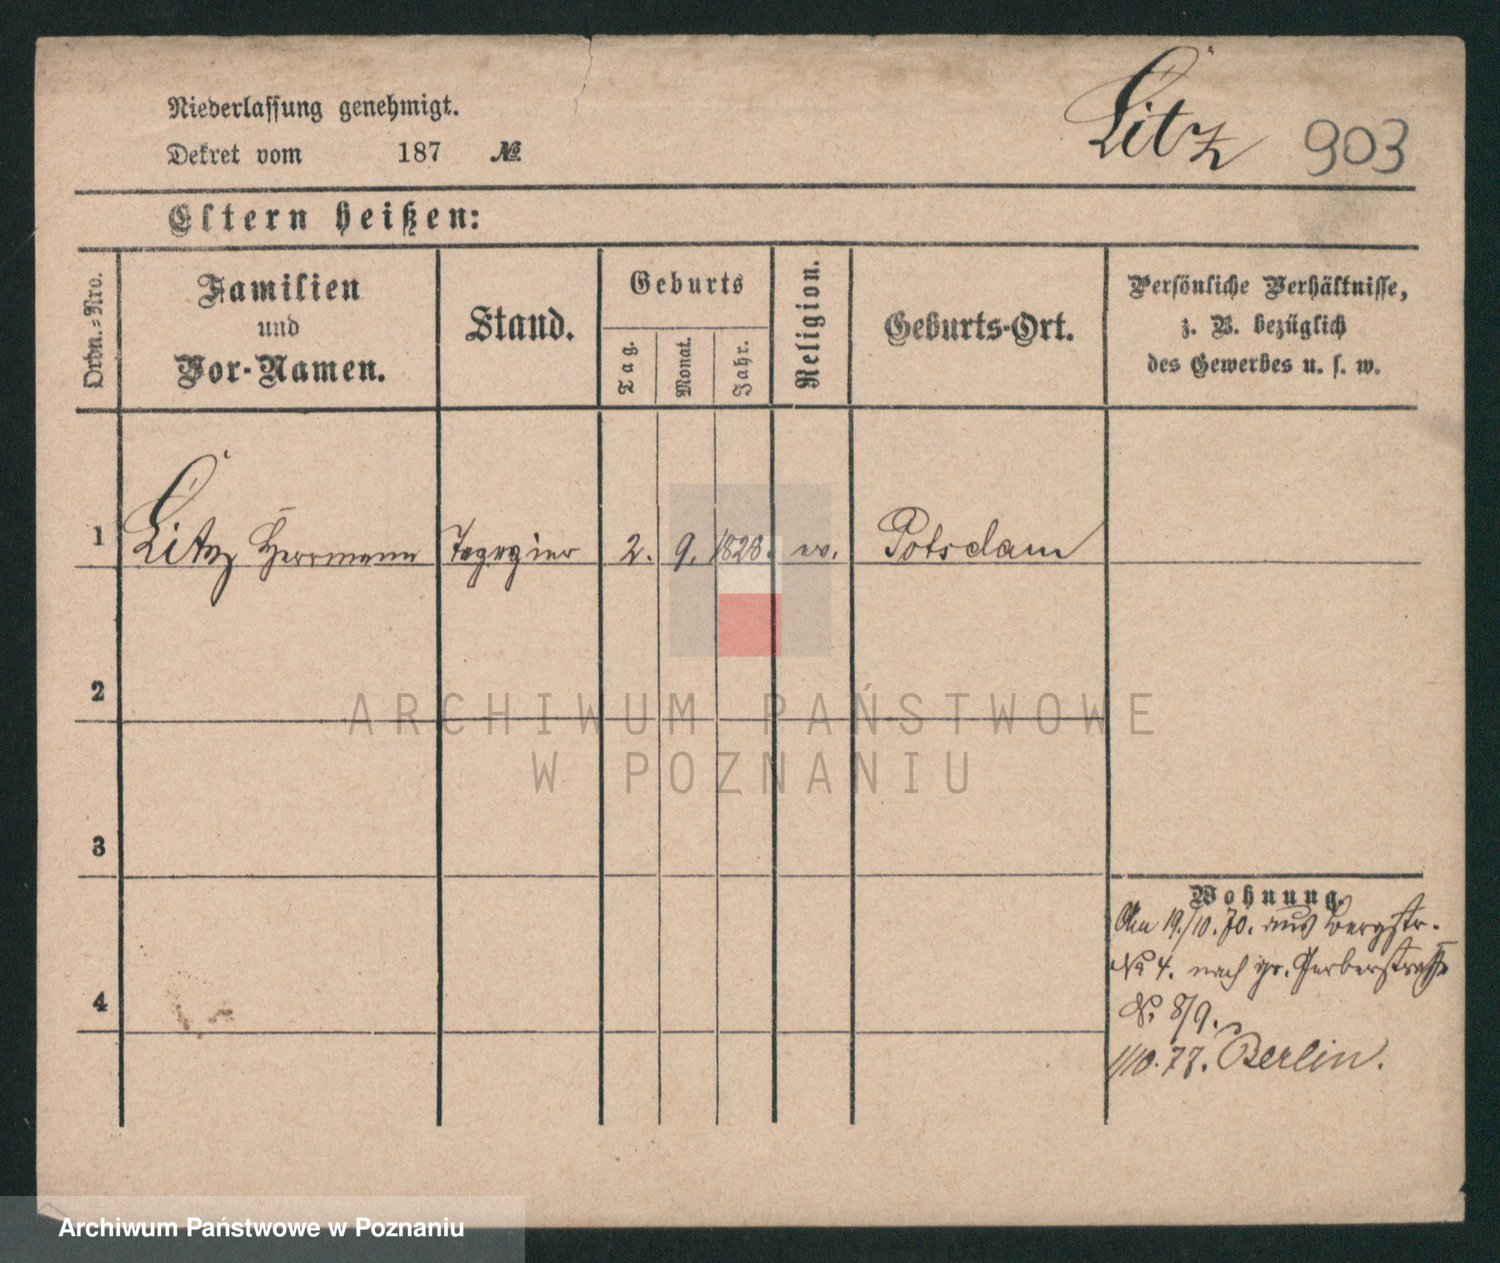 Niederlassung genehmigt.
Dekret vom 187 №
Litz 903
Eltern heißen:
Ordn.-Nro.
Familien
und
Vor-Namen.
Stand.
Geburts
Tag.
Monat.
Jahr.
Religion.
Geburts-Ort.
Persönliche Verhältnisse,
z. B. bezüglich
des Gewerbes u. s. w.
1 Litz Herrmann Tapezier 2. 9. 1828. ev. Potsdam
2
ARCHIWUM PAŃSTWOWE
W POZNANIU
3
4
Wohnung.
Am 19./10. 70. aus Bergstr.
No 4. nach gr. Gerberstraße
No 8/9.
1/10. 77. Berlin.
Archiwum Państwowe w Poznaniu